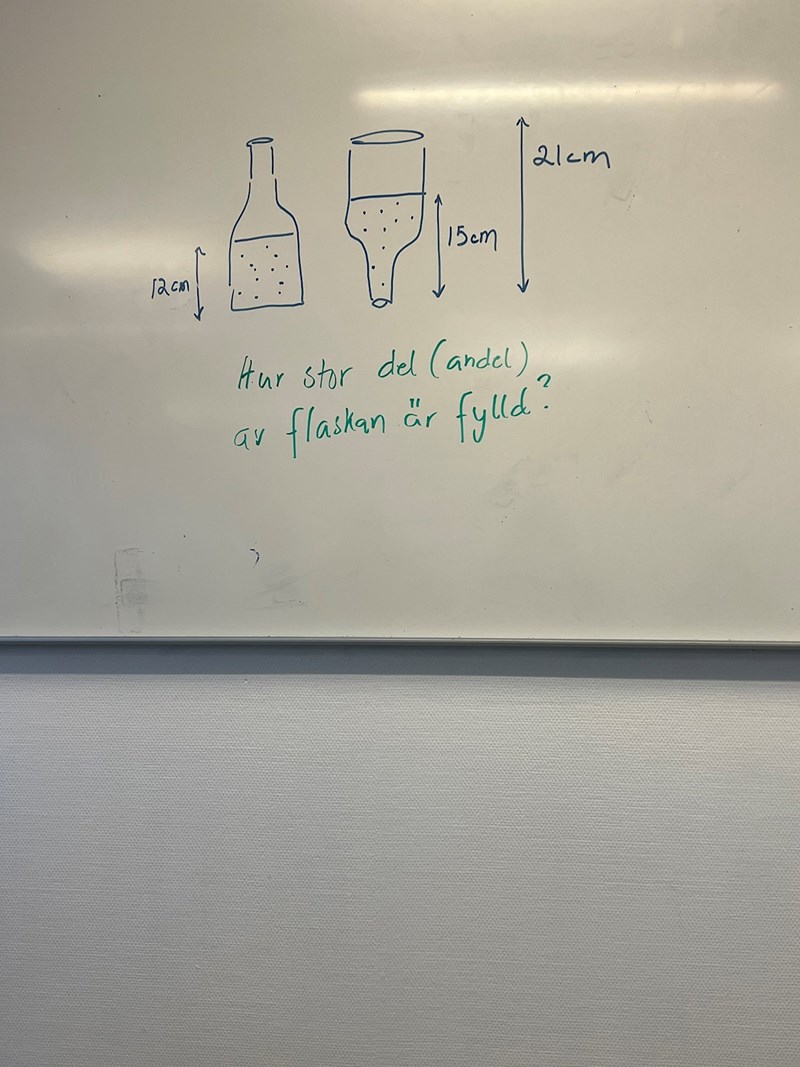 21cm
15cm
12cm
Hur stor del (andel)
av flaskan är fylld?